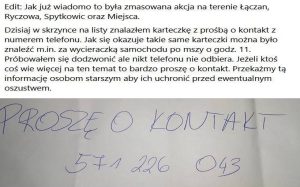 Edit: Jak już wiadomo to była zmasowana akcja na terenie Łączan,
Ryczowa, Spytkowic oraz Miejsca.
Dzisiaj w skrzynce na listy znalazłem karteczkę z prośbą o kontakt z
numerem telefonu. Jak się okazuje takie same karteczki można było
znaleźć m.in. za wycieraczką samochodu po mszy o godz. 11.
Próbowałem się dodzwonić ale nikt telefonu nie odbiera. Jeżeli ktoś
coś wie więcej na ten temat to bardzo proszę o kontakt. Przekażmy tą
informację osobom starszym aby ich uchronić przed ewentualnym
oszustwem.
PROSZĘ O KONTAKT
571 226 043